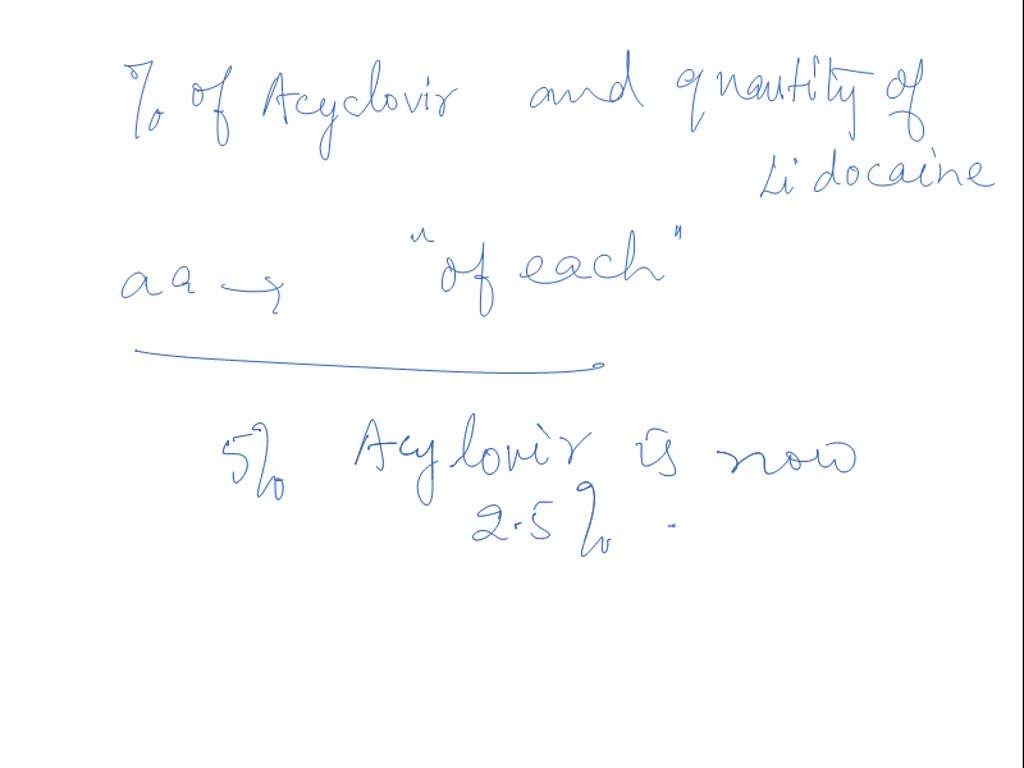 % of Acyclovir and quantity of
Lidocaine
aa → "of each"
5% Acylovir is now
2.5%.